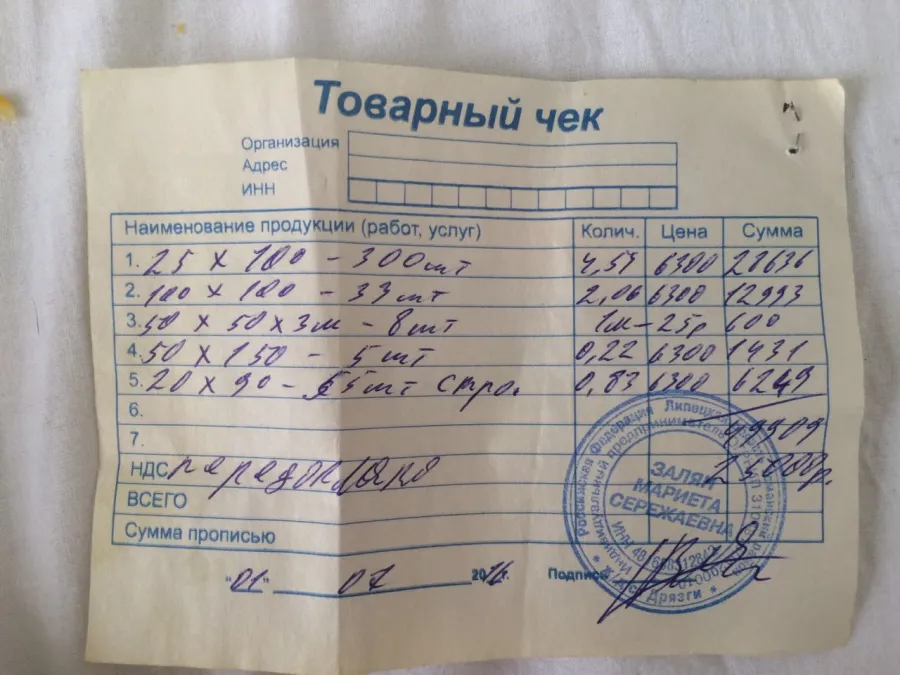 Товарный чек
Организация
Адрес
ИНН
Наименование продукции (работ, услуг) Колич. Цена Сумма
1. 25 х 100 - 300шт 4,54 6300 28636
2. 100 х 100 - 33шт 2,06 6300 12993
3. 50 х 50 х 3м - 8шт 1м-25р 600
4. 50 х 150 - 5шт 0,22 6300 1431
5. 20 х 90 - 55шт 0,83 6300 6249
6. 49909
7.
НДС 25000р.
ВСЕГО
Сумма прописью
"01" 07 2016г. Подпись
Российская Федерация Липецкая
Индивидуальный предприниматель
ЗАЛЯН
МАРИЕТА
СЕРЖАЕВНА
с. Дрязги